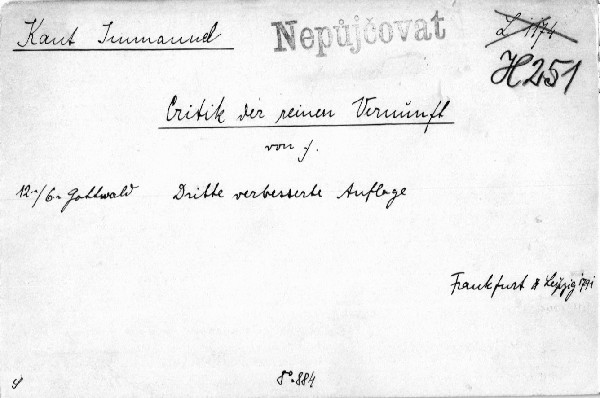 Kant Immanuel
Nepůjčovat
H 251
Critik der reinen Vernunft
von J.
12.-/6.- Gottwald Dritte verbesserte Auflage
Frankfurt u Leipzig 1791
8°.884